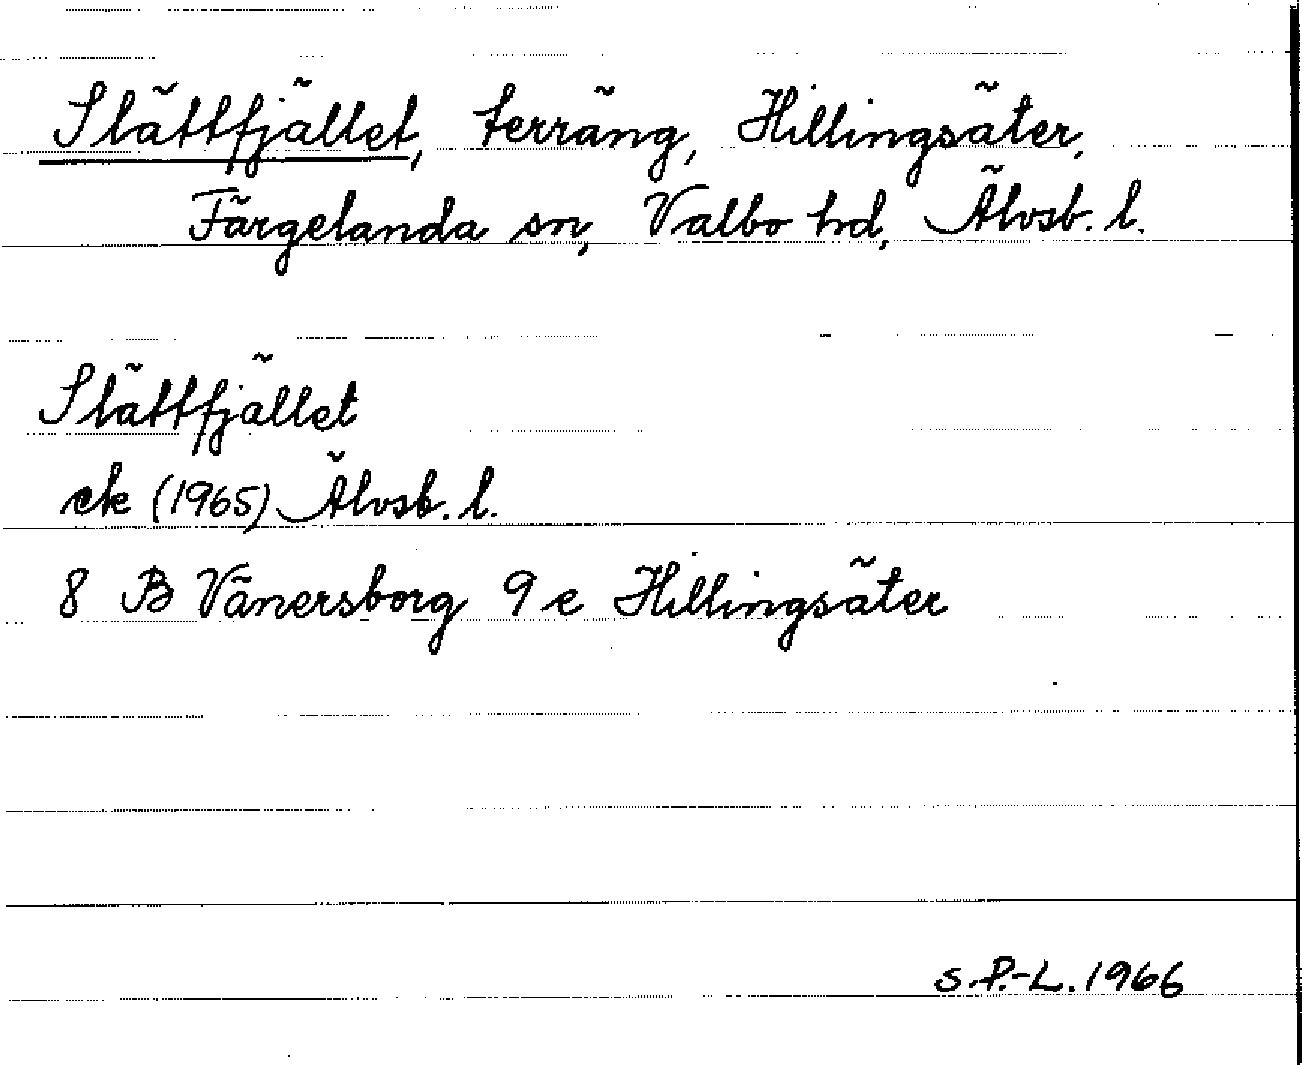 Slättfjället, terräng, Hillingsäter,
Färgelanda sn, Valbo hd, Älvsb. l.
Slättfjället
ek (1965) Älvsb. l.
8 B Vänersborg 9 e Hillingsäter
S.P.-L. 1966